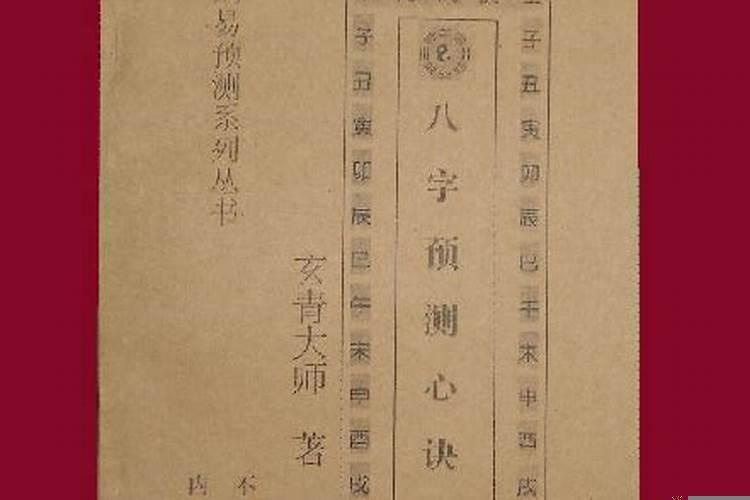 子丑寅卯辰巳午未申酉戌
八字预测心诀
子丑寅卯辰巳午未申酉戌
玄青大师 著
易预测系列丛书
不
内